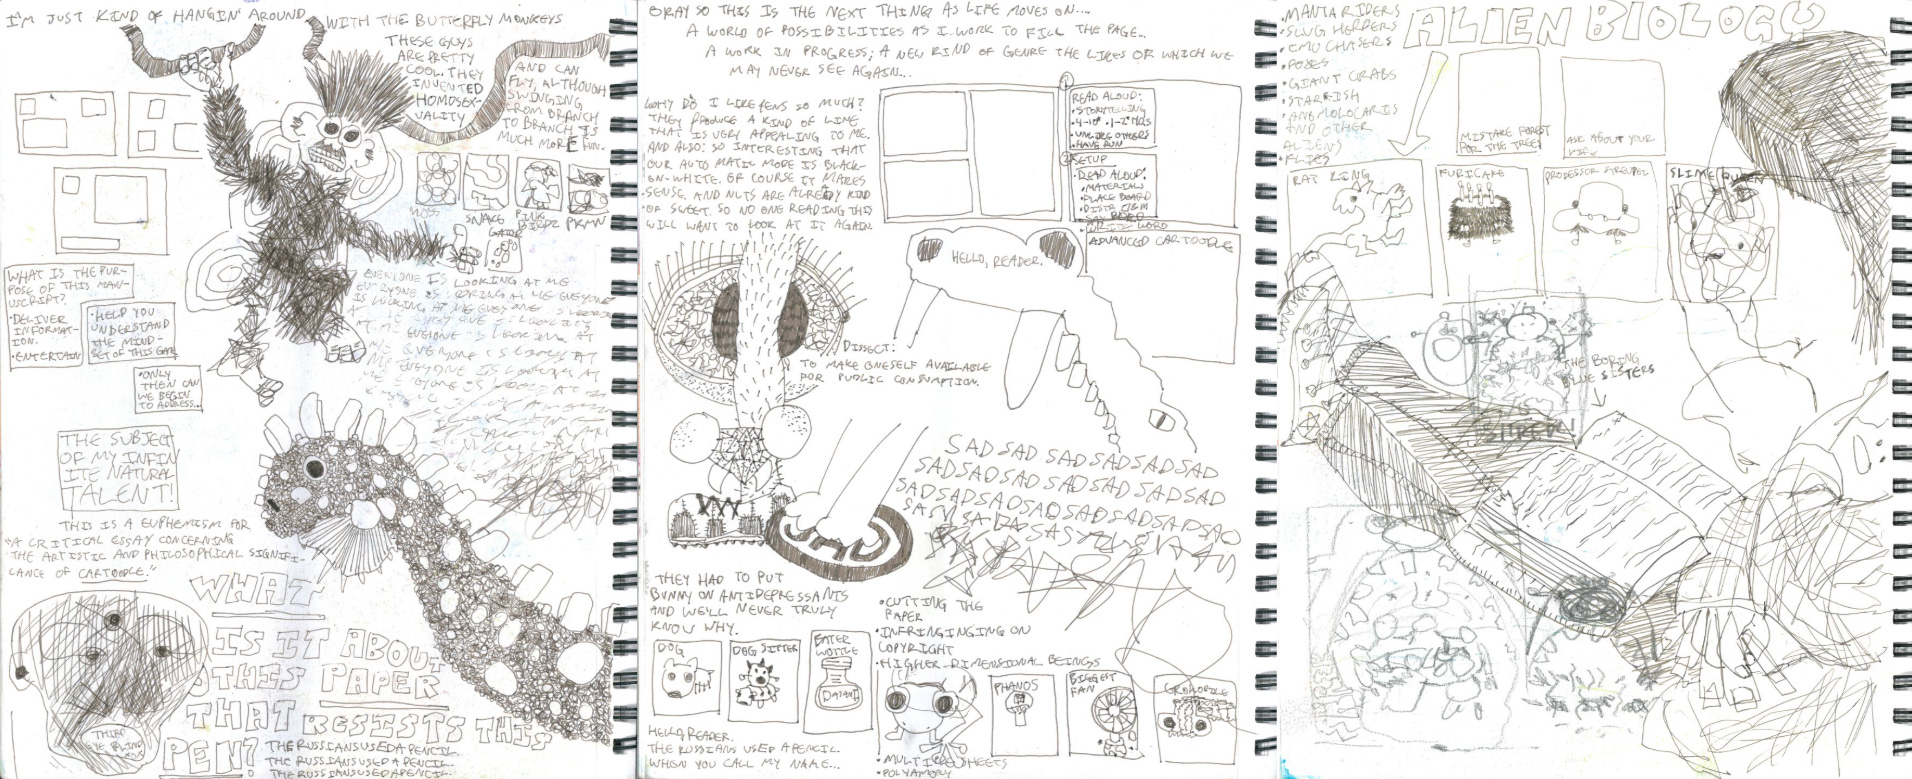 I'M JUST KIND OF HANGIN' AROUND
WITH THE BUTTERFLY MONKEYS
THESE GUYS
ARE PRETTY
COOL. THEY
INVENTED
HOMOSEX-
UALITY
AND CAN
FLY, ALTHOUGH
SWINGING
FROM BRANCH
TO BRANCH IS
MUCH MORE FUN.
MOSS
SNAKE
PINK
BIRDZ
PKMN
GATOR
WHAT IS THE PUR-
POSE OF THIS MAN-
USCRIPT?
•DELIVER
INFORMAT-
ION.
•ENTERTAIN
•HELP YOU
UNDERSTAND
THE MIND-
SET OF THIS GAME
•ONLY
THEN CAN
WE BEGIN
TO ADDRESS...
EVERYONE IS LOOKING AT ME
EVERYONE IS LOOKING AT ME EVERYONE
IS LOOKING AT ME EVERYONE IS LOOKING
AT ME EVERYONE IS LOOKING
AT ME EVERYONE IS LOOKING AT
ME EVERYONE IS LOOKING AT
ME EVERYONE IS LOOKING AT
ME EVERYONE IS LOOKING AT
THE SUBJECT
OF MY INFIN
ITE NATURAL
TALENT!
THIS IS A EUPHEMISM FOR
"A CRITICAL ESSAY CONCERNING
THE ARTISTIC AND PHILOSOPHICAL SIGNIFI-
CANCE OF CARTOODLE."
WHAT
IS IT ABOUT
THIS PAPER
THAT RESISTS THIS
PEN?
THIRD
EYE BLIND
THE RUSSIANS USED A PENCIL.
THE RUSSIANS USED A PENCIL.
THE RUSSIANS USED A PENCIL.
OKAY SO THIS IS THE NEXT THING AS LIFE MOVES ON...
A WORLD OF POSSIBILITIES AS I WORK TO FILL THE PAGE..
A WORK IN PROGRESS; A NEW KIND OF GENRE THE LIKES OF WHICH WE
MAY NEVER SEE AGAIN...
WHY DO I LIKE PENS SO MUCH?
THEY PRODUCE A KIND OF LINE
THAT IS VERY APPEALING TO ME.
AND ALSO: SO INTERESTING THAT
OUR AUTOMATIC MODE IS BLACK-
ON-WHITE. OF COURSE IT MAKES
SENSE. AND NUTS ARE ALREADY KIND
OF SWEET. SO NO ONE READING THIS
WILL WANT TO LOOK AT IT AGAIN.
1
READ ALOUD:
•STORYTELLING
•4-10P •1-2 HRS
•UNLIKE OTHERS
•HAVE FUN
2
SETUP
•READ ALOUD:
•MATERIALS
•PLACE BOARD
•SAY WORD
•WRITE WORD
ADVANCED CARTOODLE
HELLO, READER.
DISSECT:
TO MAKE ONESELF AVAILABLE
FOR PUBLIC CONSUMPTION.
SADSAD SADSADSADSAD
SADSADSADSADSADSADSAD
SADSADSADSADSADSADSAD
THEY HAD TO PUT
BUNNY ON ANTIDEPRESSANTS
AND WE'LL NEVER TRULY
KNOW WHY.
DOG
DOG SITTER
EATER
WOTTLE
DASANI
•CUTTING THE
PAPER
•INFRINGINGING ON
COPYRIGHT
•HIGHER-DIMENSIONAL BEINGS
PHANOS
BIGGEST
FAN
CROKODILE
HELLO, READER.
THE RUSSIANS USED A PENCIL.
WHEN YOU CALL MY NAME...
•MULTIPLE SHEETS
•POLYAMORY
•MANTA RIDERS
•SLUG HERDERS
•EMU CHASERS
•POXES
•GIANT CRABS
•STARFISH
•ANOMOLOCARIES
AND OTHER
ALIENS
•FLIES
ALIEN BIOLOGY
MISTAKE FOREST
FOR THE TREES
ASK ABOUT YOUR
WIFE
RAT KING
FURICAKE
PROFESSOR STREUPEL
SLIME QUEEN
THE BORING
BLUE SISTERS